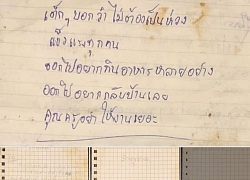 เด็กๆบอกว่า ไม่ต้องเป็นห่วง
แข็งแรงทุกคน
ออกไปอยากกินอาหารหลายอย่าง
ออกไปอยากกลับบ้านเลย
คุณครูอย่าให้งานเยอะ